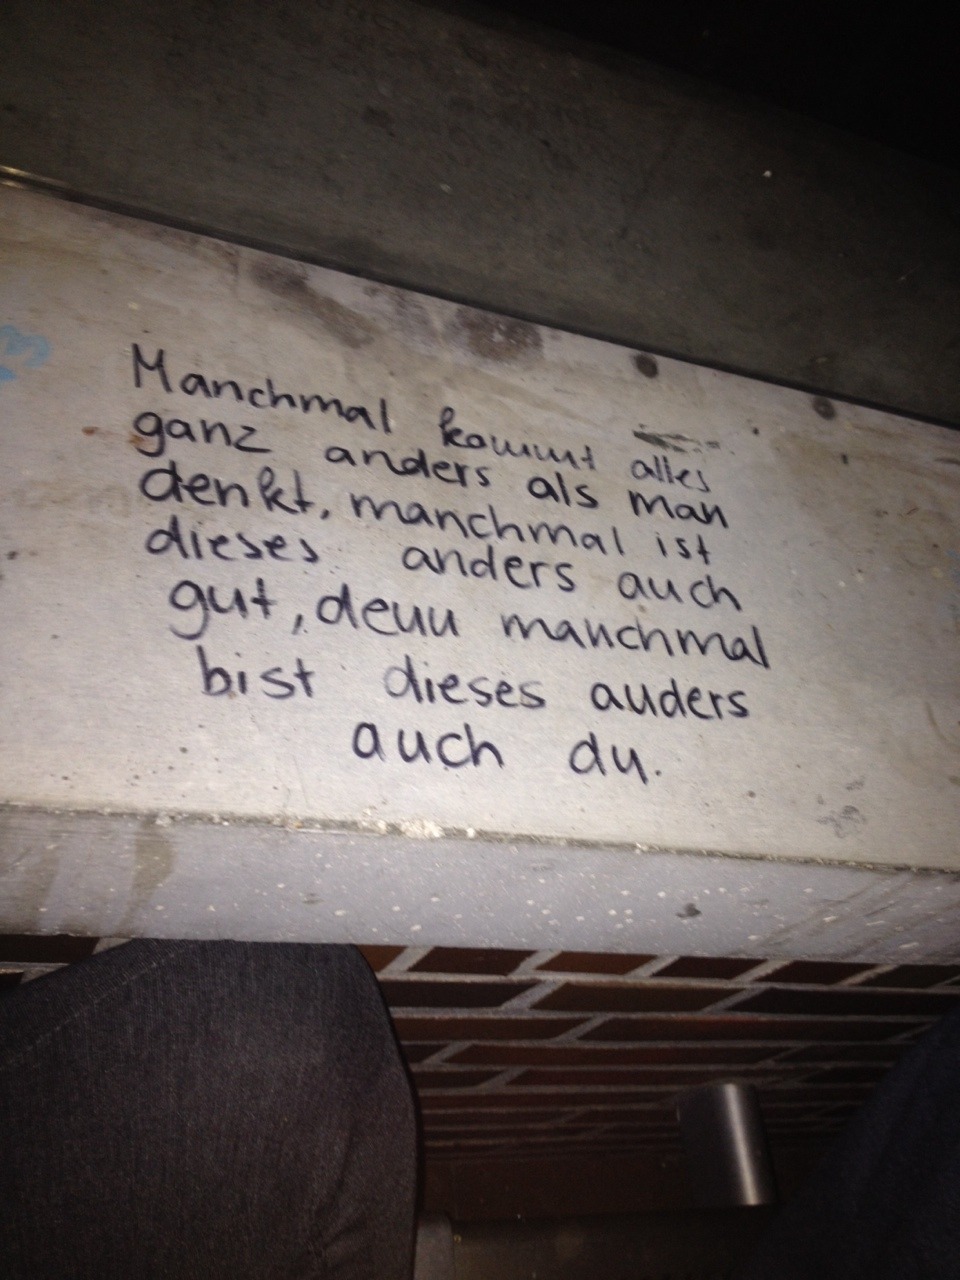 Manchmal kommt alles
ganz anders als man
denkt, manchmal ist
dieses anders auch
gut, denn manchmal
bist dieses anders
auch du.